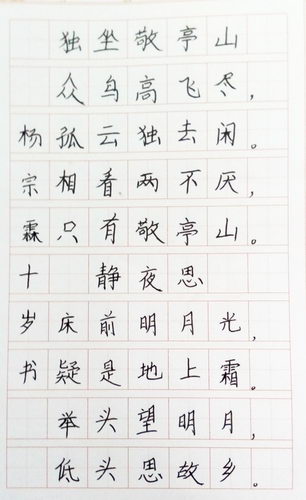 独坐敬亭山
众鸟高飞尽，
孤云独去闲。
相看两不厌，
只有敬亭山。
静夜思
床前明月光，
疑是地上霜。
举头望明月，
低头思故乡。
杨宗霖十岁书